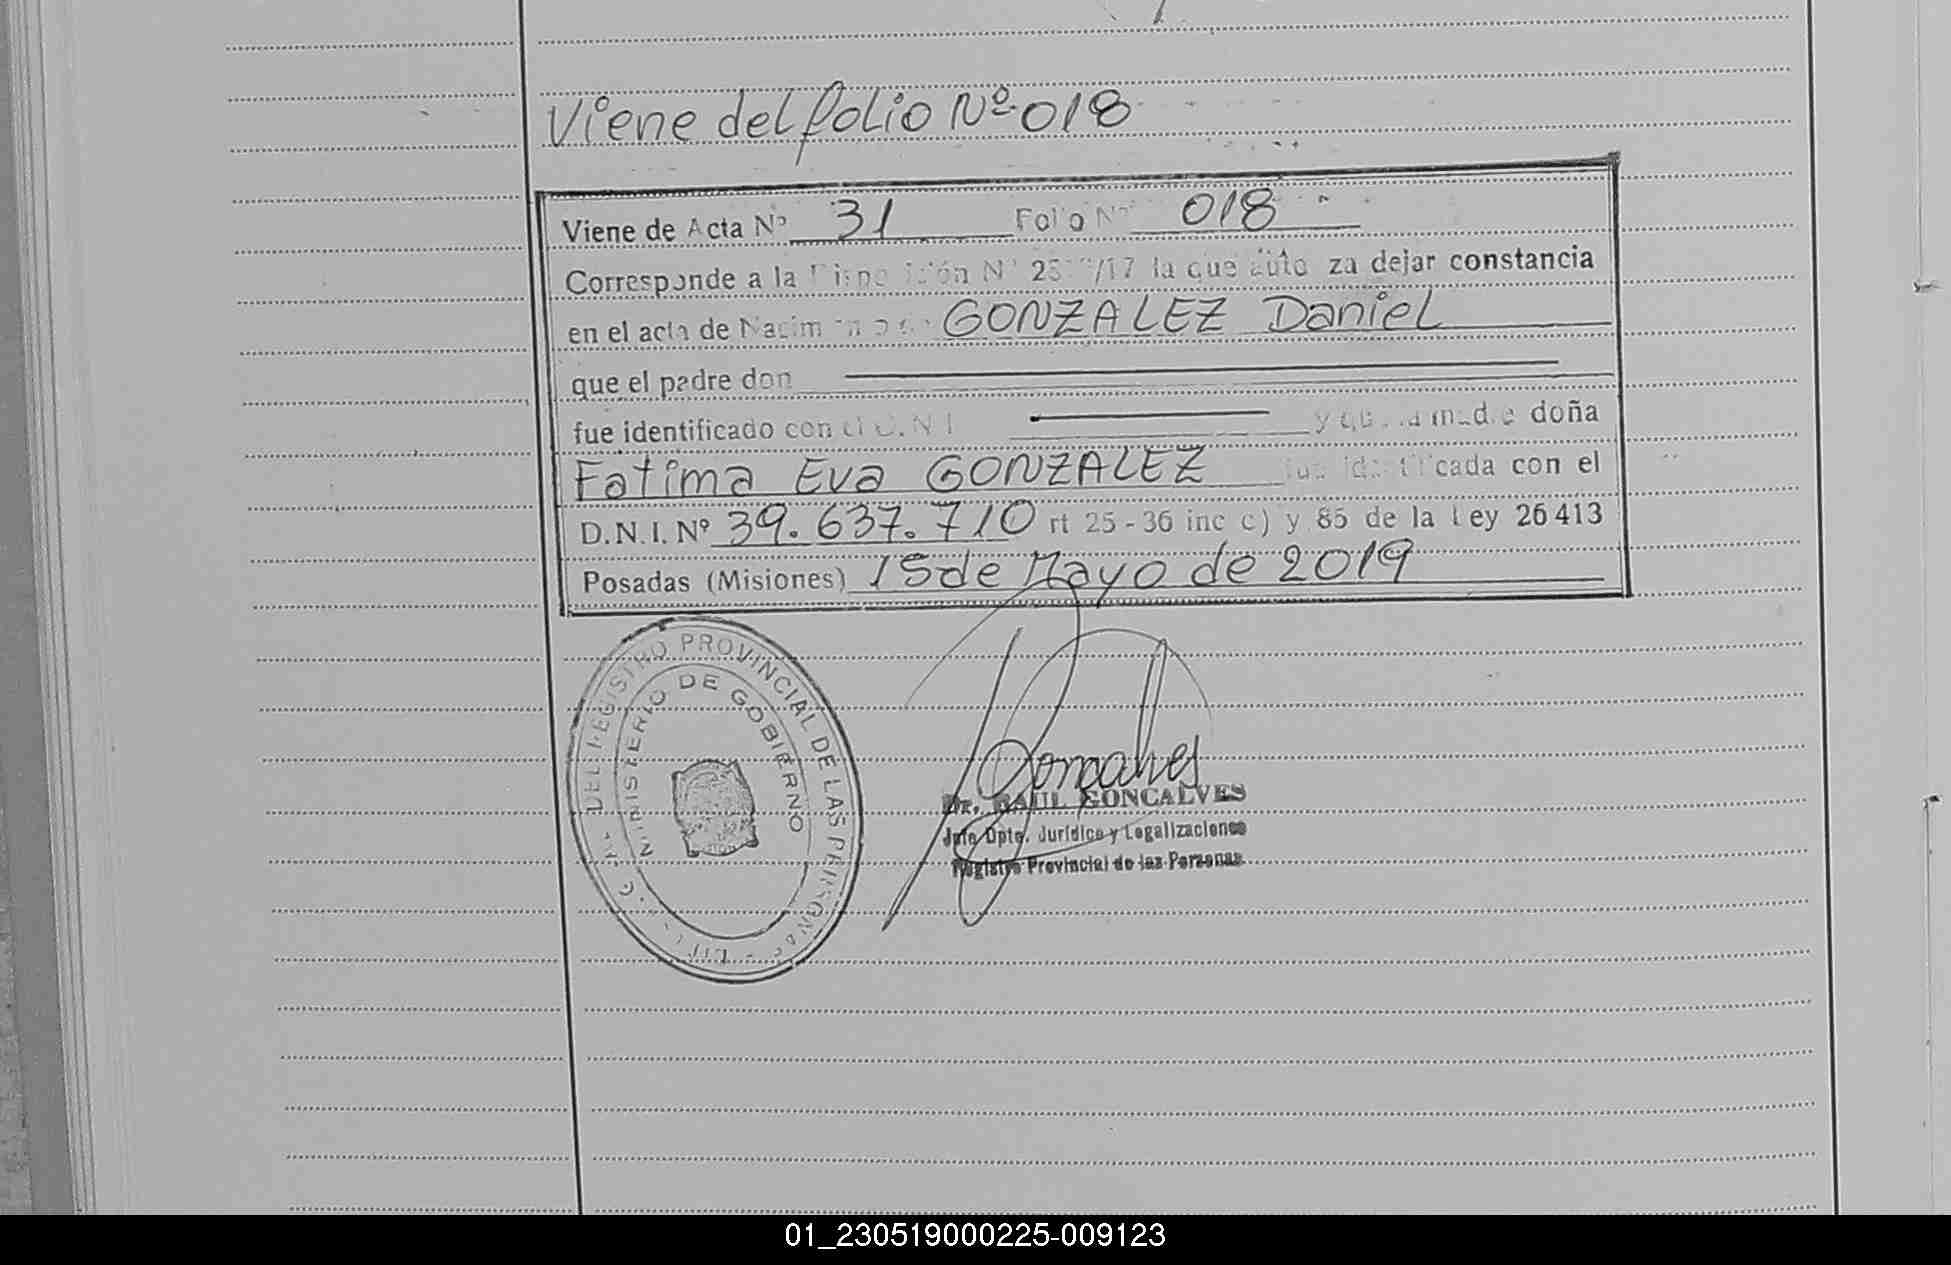 Viene del folio Nº 018
Viene de Acta Nº 31 Folio Nº 018
Corresponde a la Disposición Nº /17 la que autoriza dejar constancia
en el acta de Nacimiento de GONZALEZ Daniel
que el padre don
fue identificado con el D.N.I. y que la madre doña
Fatima Eva GONZALEZ fue identificada con el
D.N.I. Nº 39.637.710 rt 25 - 36 inc c) y 85 de la Ley 26 413
Posadas (Misiones) 15 de Mayo de 2019
DEL REGISTRO PROVINCIAL DE LAS PERSONAS
MINISTERIO DE GOBIERNO
Goncalves
Dr. RAUL GONCALVES
Jefe Dpto. Jurídico y Legalizaciones
Registro Provincial de las Personas
01_230519000225-009123